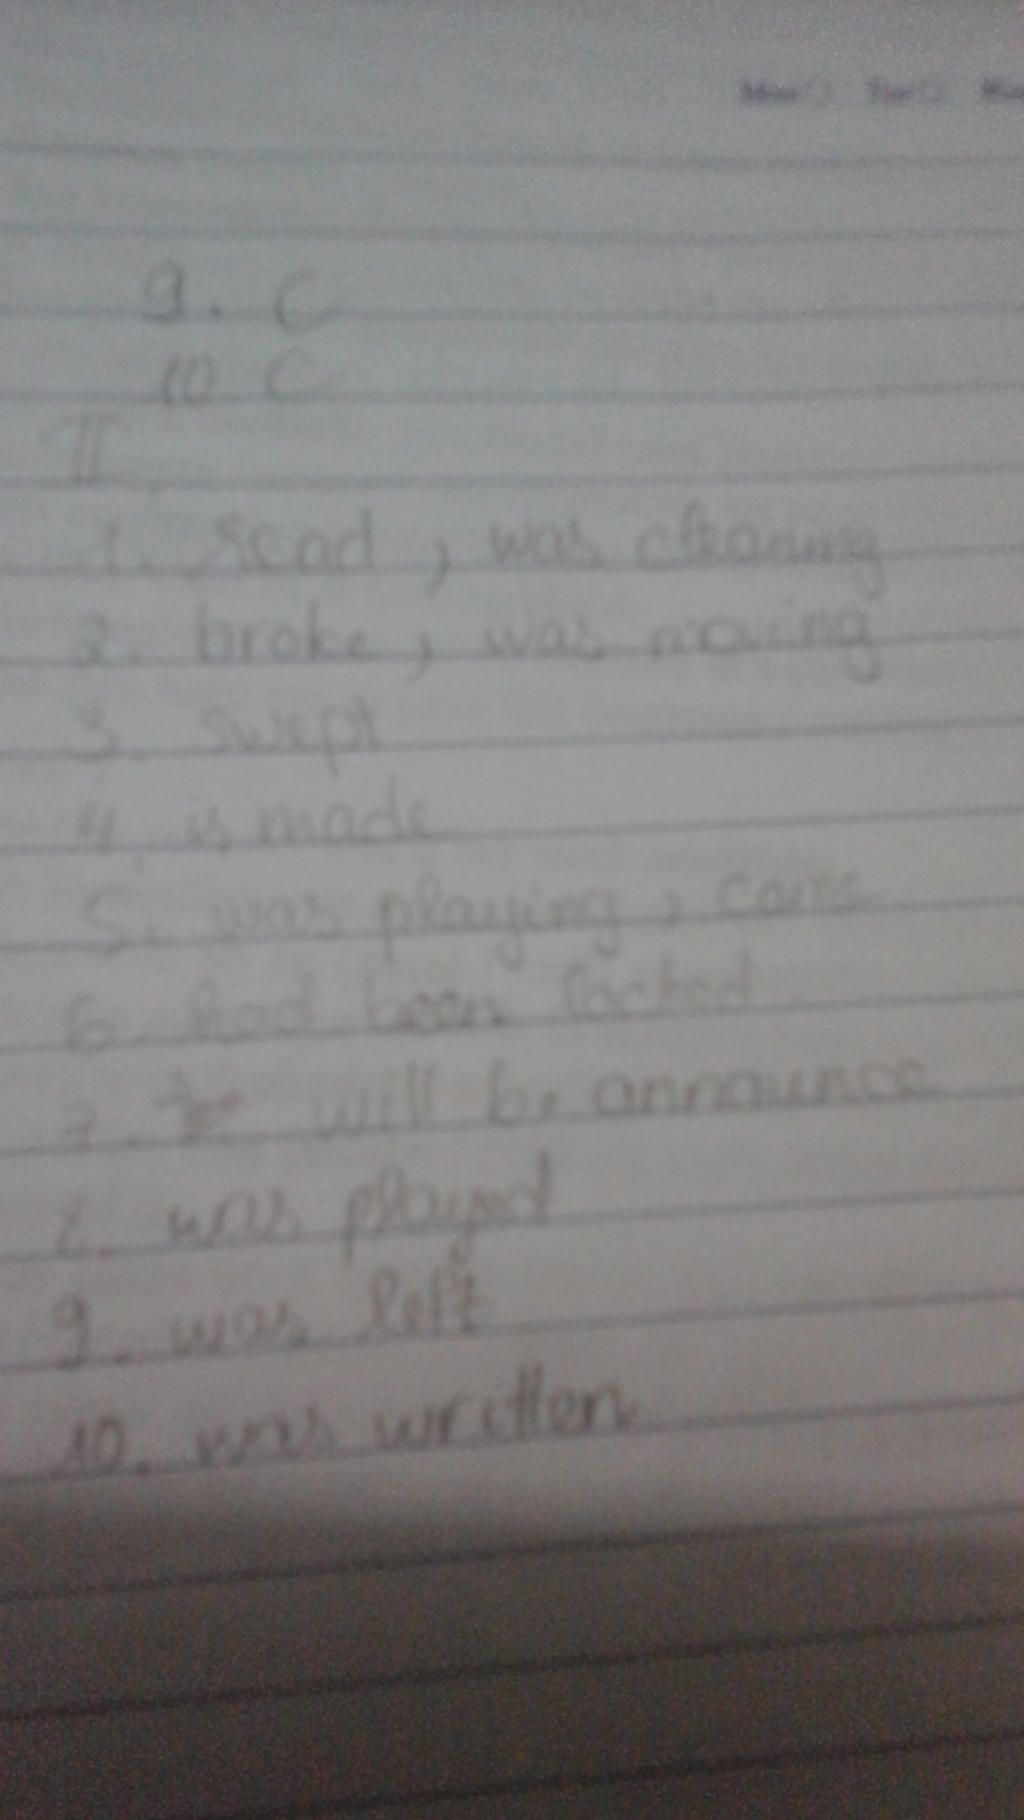 9. C
10. C
II
1. read, was cleaning
2. broke, was moving
3. swept
4. is made
5. was playing, came
6. had been locked
7. will be announce
8. was played
9. was left
10. was written